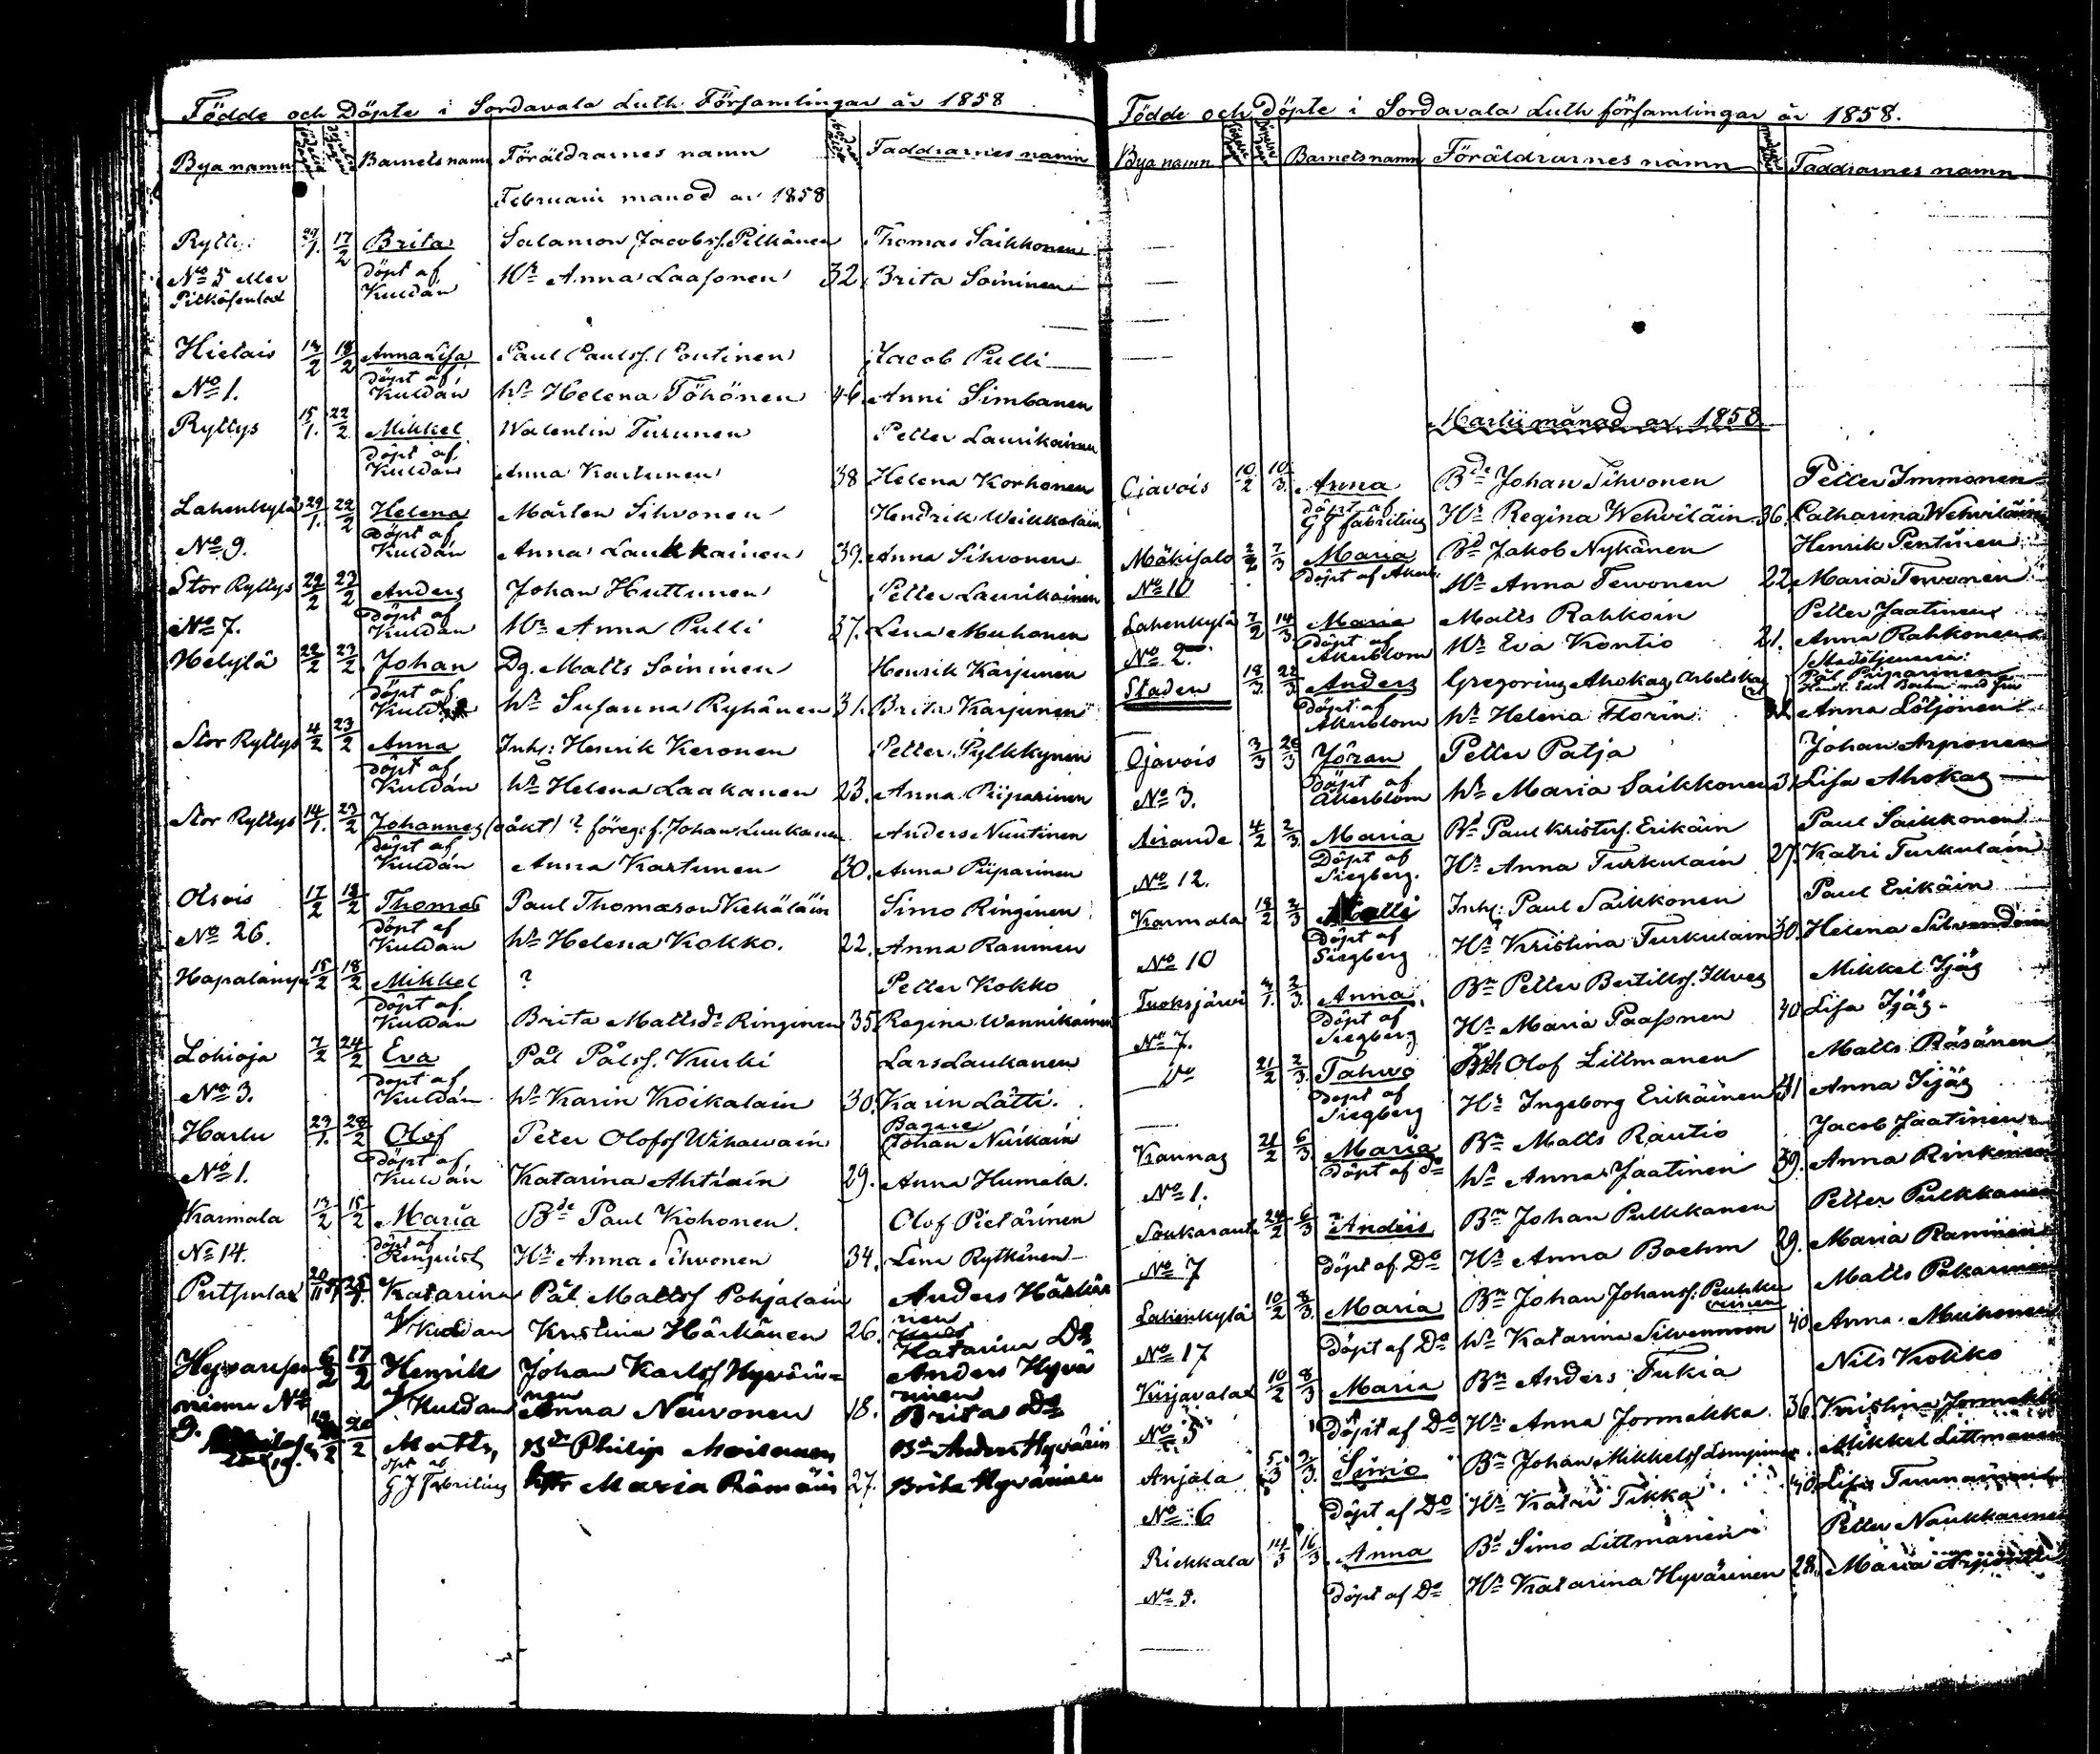 Födde och Döpte i Sordavala Luth. Församlingar år 1858
Byanamn Barnets namn Föräldrarnes namn Faddrarnes namn
Februarii månad år 1858
Ryttys 29/1. 17/2 Brita Salamon Jacobss. Pitkänen Thomas Saikkonen
No 5 eller döpt af Hr Anna Laasonen 32. Brita Soininen
Pitkäsenlax Kuldán
Hietais 13/2 18/2 Anna Lisa Paul Paulss. Poutinen Jacob Pulli
No 1. döpt af Kuldán Hr Helena Töhönen 46. Anni Simbanen
Ryttys 15/1. 22/2. Mikkel Walentin Turunen Petter Laurikainen
döpt af Kuldán Anna Kartunen 38 Helena Korhonen
Lahenkylä 29/1. 22/2 Helena Mårten Sihvonen Hendrik Weikkolain
No 9. döpt af Kuldán Anna Laukkainen 39. Anna Sihvonen
Stor Ryttys 22/2 23/2 Anders Johan Huttunen Petter Laurikainen
No 7. döpt af Kuldán Hr Anna Pulli 37. Lena Muhonen
Helylä 22/2 23/2 Johan Dg. Matts Soininen Henrik Karjunen
döpt af Hr Susanna Ryhänen 31. Brita Karjunen
Stor Ryttys 4/2 23/2 Anna Inhs: Henrik Keronen Petter Pylkkynen
döpt af Kuldán Hr Helena Laakanen 23. Anna Piiparinen
Stor Ryttys 14/1. 23/2 Johannes (oäkt) ? föreg: f. Johan Luukanen Anders Nuutinen
döpt af Kuldán Anna Kartunen 30. Anna Piiparinen
Otsois 17/2 18/2 Thomas Paul Thomasson Kekäläin Simo Ringinen
No 26. döpt af Kuldán Hr Helena Kokko. 22. Anna Rauninen
15/2 18/2 Mikkel ? Petter Kokko
döpt af Kuldán Brita Mattsdr Ringinen 35. Regina Wannikainen
Lohioja 7/2 24/2 Eva Pål Pålss. Kuuki Lars Laukanen
No 3. döpt af Kuldán Hr Karin Koikalain 30. Karin Lätti.
Harlu 23/1. 28/2 Olof Peter Olofss Wihawain Johan Nuikain
No 1. döpt af Kuldán Katarina Ahtiain 29. Anna Humala.
Karmala 13/2 15/2 Maria Bde Paul Kohonen. Olof Pietärinen
No 14. döpt af Renquist Hr Anna Sihvonen 34. Lena Rytkönen
Putsenlax 20/11 Katarina Pål Mattss Pohjalain Anders Härkänen
af Kuldan Kristina Härkänen 26. Katarina Do
6/2 17/2 Henrik Johan Karlss Hyvärinen Anders Hyvärinen
af Kuldan Anna Neuvonen 18. Brita Do
9. 20/2 Matts, Bde Philip Moilanen Bde Anders Hyvärin
döpt af G J Fabritius Hr Maria Rämäin 27. Brita Hyvärinen
Födde och Döpte i Sordavala Luth församlingar år 1858.
Bya namn Barnets namn Föräldrarnes namn Faddrarnes namn
Martii månad år 1858
Ojavois 10/2 10/3. Anna Bde Johan Sihvonen Petter Immonen
döpt af G J Fabritius Hr Regina Wehviläin 36. Catharina Wehviläin
Mäkisalo 2/2 7/3 Maria Bd Jakob Nykänen Henrik Pentinen
No 10 Döpt af Akerb. Hr Anna Tervonen 22. Maria Tervonen
Lahenkylä 7/2 14/3 Maria Matts Rahkoin Petter Jaatinen
No 2. Döpt af Akerblom Hr Eva Kontio 21. Anna Rahkonen
Staden 18/3. 22/3 Anders Gregorius Ahokas, Arbetskarl Pål Piiparinen
Döpt af Akerblom Hr Helena Florin Anna Löljönen
Ojavois 3/3 28/3 Jöran Petter Patja Johan Arponen
No 3. Döpt af Akerblom Hr Maria Saikkonen 31 Lisa Ahokas
Airande 4/2 2/3. Maria Bd Paul Kristers. Erikäin Paul Saikkonen
No 12. Döpt af Siegberg. Hr Anna Turkulain 27. Katri Turkulain
Karmala 18/2 2/3 Inhs: Paul Saikkonen Paul Erikäin
No 10 Döpt af Siegberg Hr Kristina Turkulain 30. Helena Silvendoin
Tuoksjärvi 2/3. Anna Bn Petter Bertills. Ilves Mikkel Ijäs
No 7. Döpt af Siegberg Hr Maria Paasonen 40 Lisa Ijäs
Do 21/2 2/3. Tahwo Olof Littmanen Matts Räsänen
Döpt af Siegberg Hr Ingeborg Erikäinen 41 Anna Ijäs
Kaunas 21/2 6/3 Maria Bn Matts Rautio Jacob Jaatinen
No 1. Döpt af Do Hr Anna Jaatinen 39. Anna Rinkinen
24/2 6/3 Andeis Bn Johan Pulkkanen Petter Pulkkanen
No 7 Döpt af Do Hr Anna Boehm 39. Maria Raninen
Lahenkylä 10/2 8/3. Maria Bn Johan Johanss. Petter Matts Pakarinen
No 17 Döpt af Do Hr Katarina Silvennoin 40. Anna Muhonen
Kirjavalax 10/2 8/3 Maria Bn Anders Tukia Nils Kokko
No 5 Döpt af Do Hr Anna Jormakka 36. Kristina Jormakka
Anjala 5/3 9/3. Simo Bn Johan Mikkelss Lempinen Mikkel Littmanen
No 6 Döpt af Do Hr Katri Tikka 40. Lisa
Riekkala 14/3 16/3. Anna Bd Simo Littmanen Petter Naukkarinen
No 5. Döpt af Do Hr Katarina Hyvärinen 28. Maria Arponen